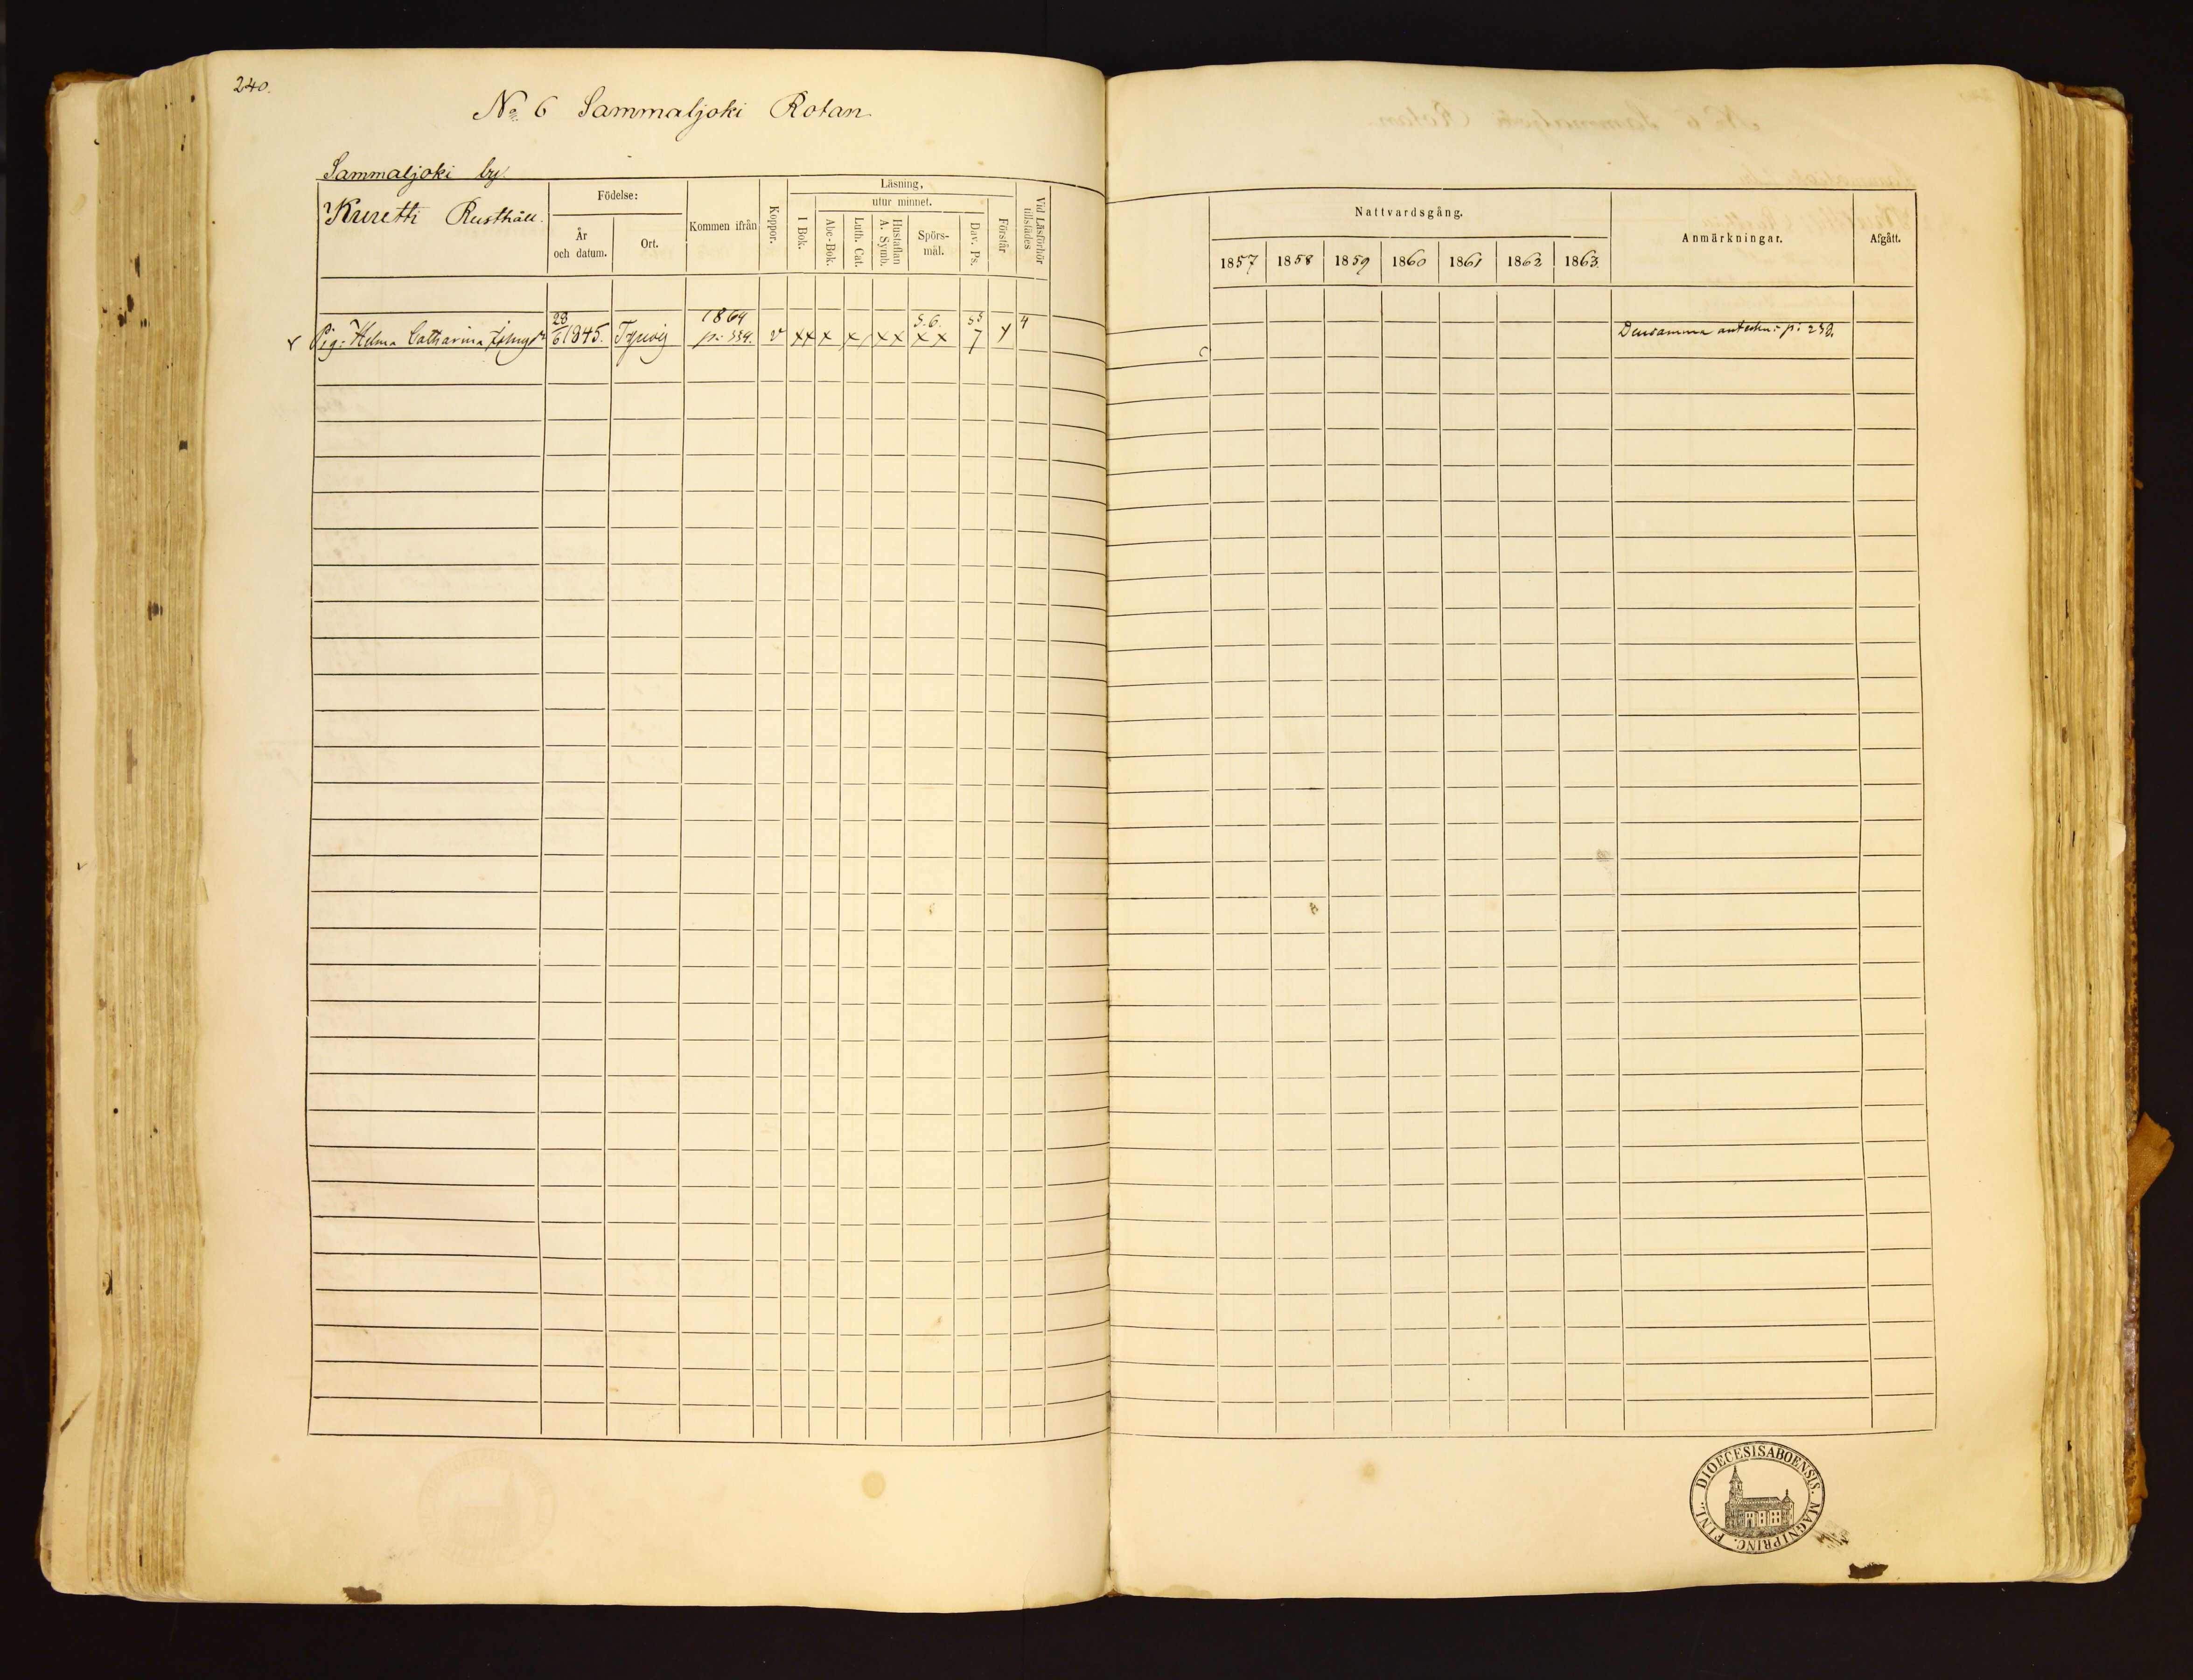 240.
No 6 Sammaljoki Rotan
Sammaljoki by.
Kuretti Rusthåll.
Födelse:
År och datum.
Ort.
Kommen ifrån
Koppor.
Läsning,
utur minnet.
I Bok.
Abc-Bok.
Luth. Cat.
Hustaflan A. Symb.
Spörs-mål.
Dav. Ps.
Förstår
Vid Läsförhör tillstädes
Nattvardsgång.
1857 1858 1859 1860 1861 1862 1863.
Anmärkningar.
Afgått.
1864 5.6. 4
Pig: Helma Catharina 23/6 1845. Tyrvis p: 334. v xx x x xx xx 7 y
Densamma anteckn: p:
FINL. DIOECESISABOENSIS. MAGNIPRINC.